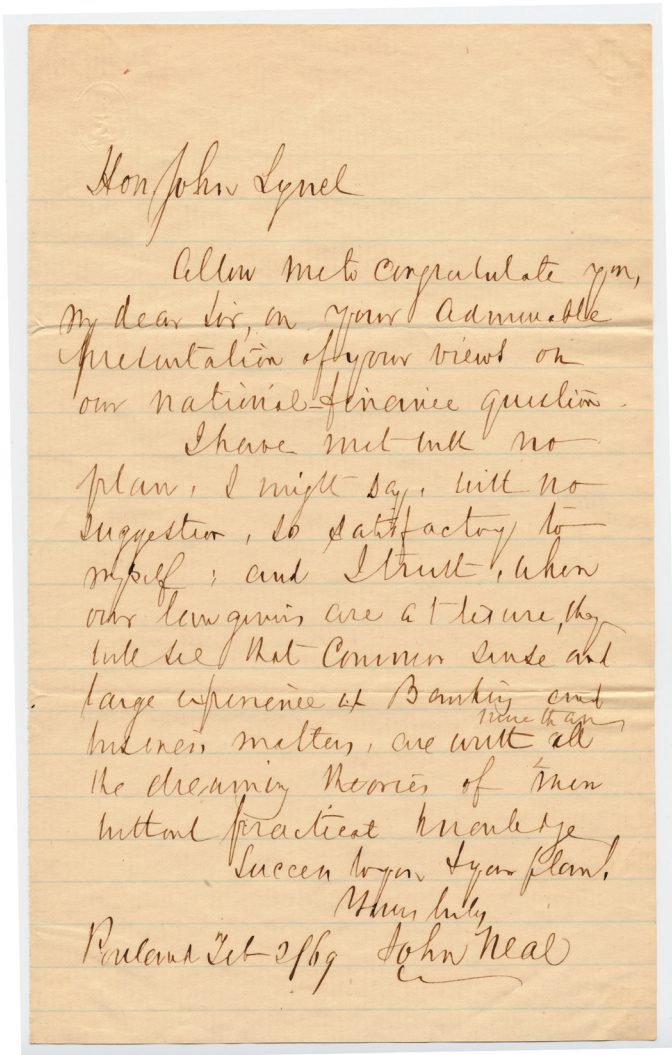 Hon John Lynch
Allow me to congratulate you,
my dear Sir, on your admirable
presentation of your views on
our national-finance question.
I have met with no
plan, I might say, with no
suggestion, so satisfactory to
myself; and I trust, when
our lawgivers are at leisure, they
will see that Common sense and
large experience in Banking and
more than
business matters, are worth all
the dreaming theories of men
without practical knowledge
Success to you & your plan.
Yours truly
Portland Feb 2/69 John Neal